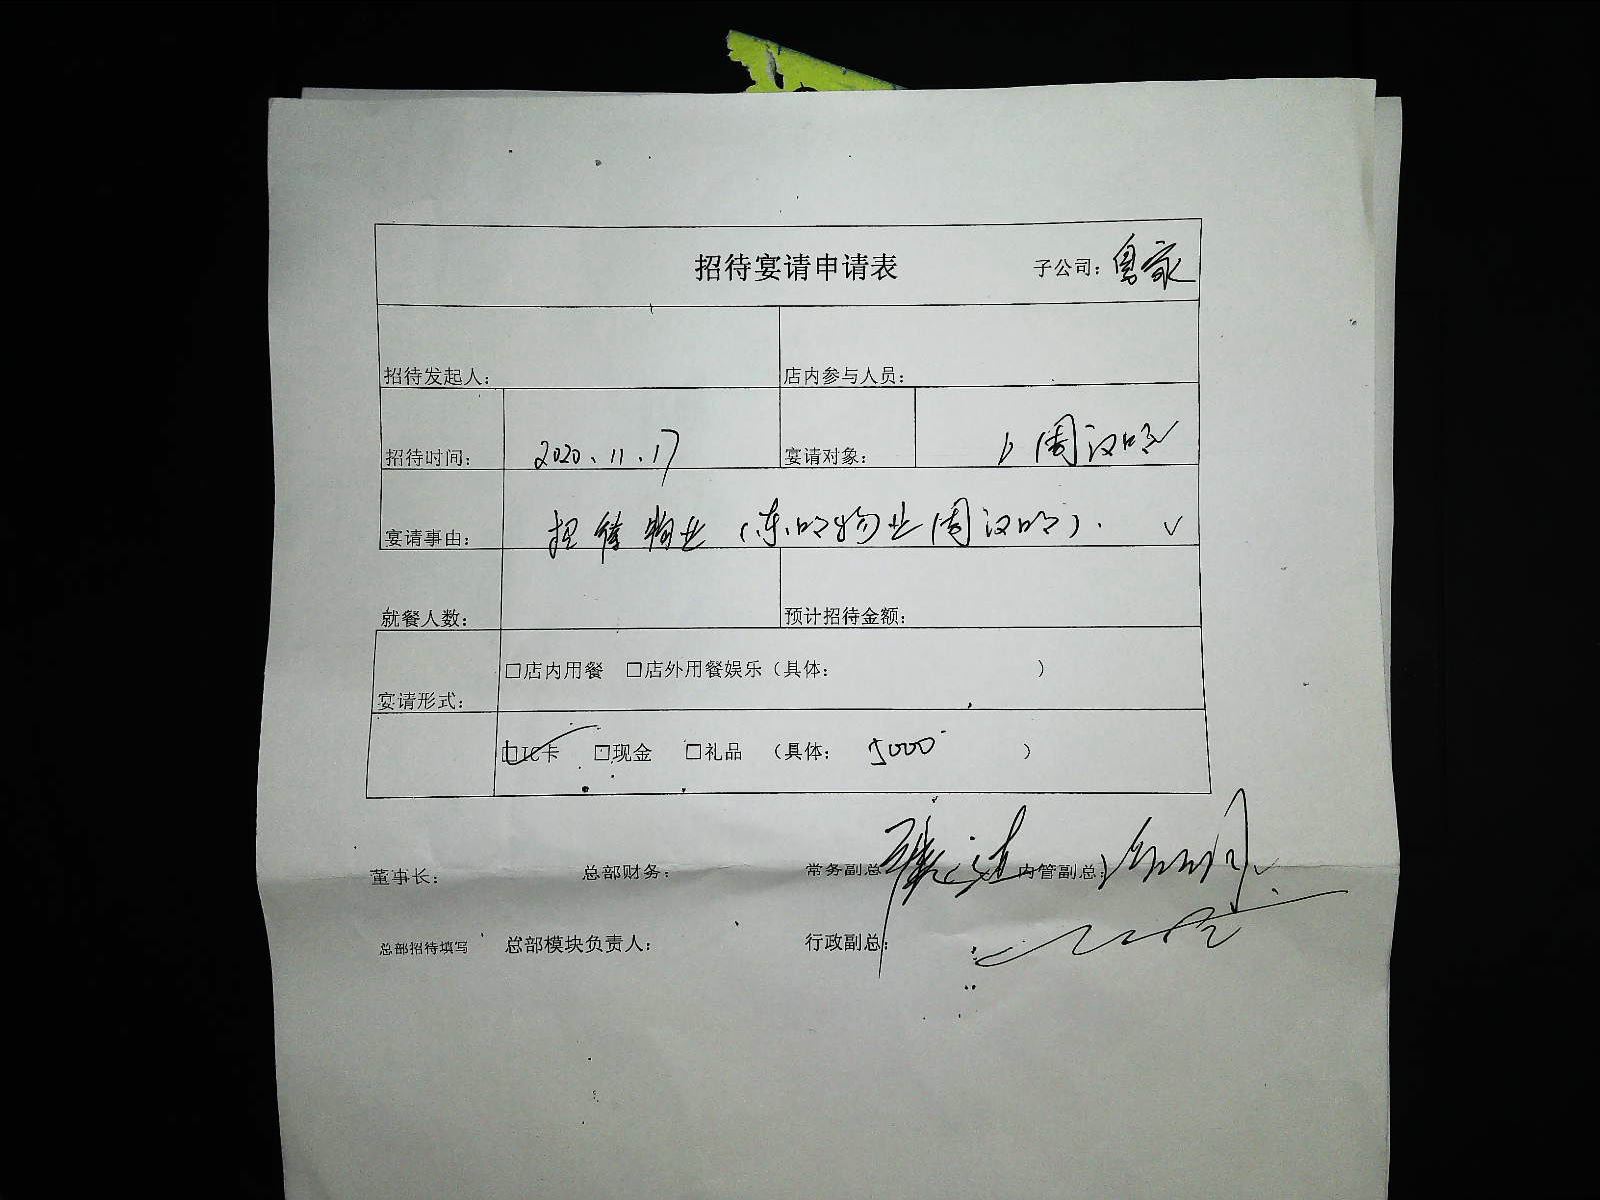 招待宴请申请表 子公司:
招待发起人: 店内参与人员:
招待时间: 2020.11.17 宴请对象: 周汉明
宴请事由: 招待物业(东明物业周汉明). √
就餐人数: 预计招待金额:
宴请形式: □店内用餐 □店外用餐娱乐(具体: )
□IC卡 □现金 □礼品 (具体: 5000 )
董事长: 总部财务: 常务副总 内管副总:
总部招待填写 总部模块负责人: 行政副总: